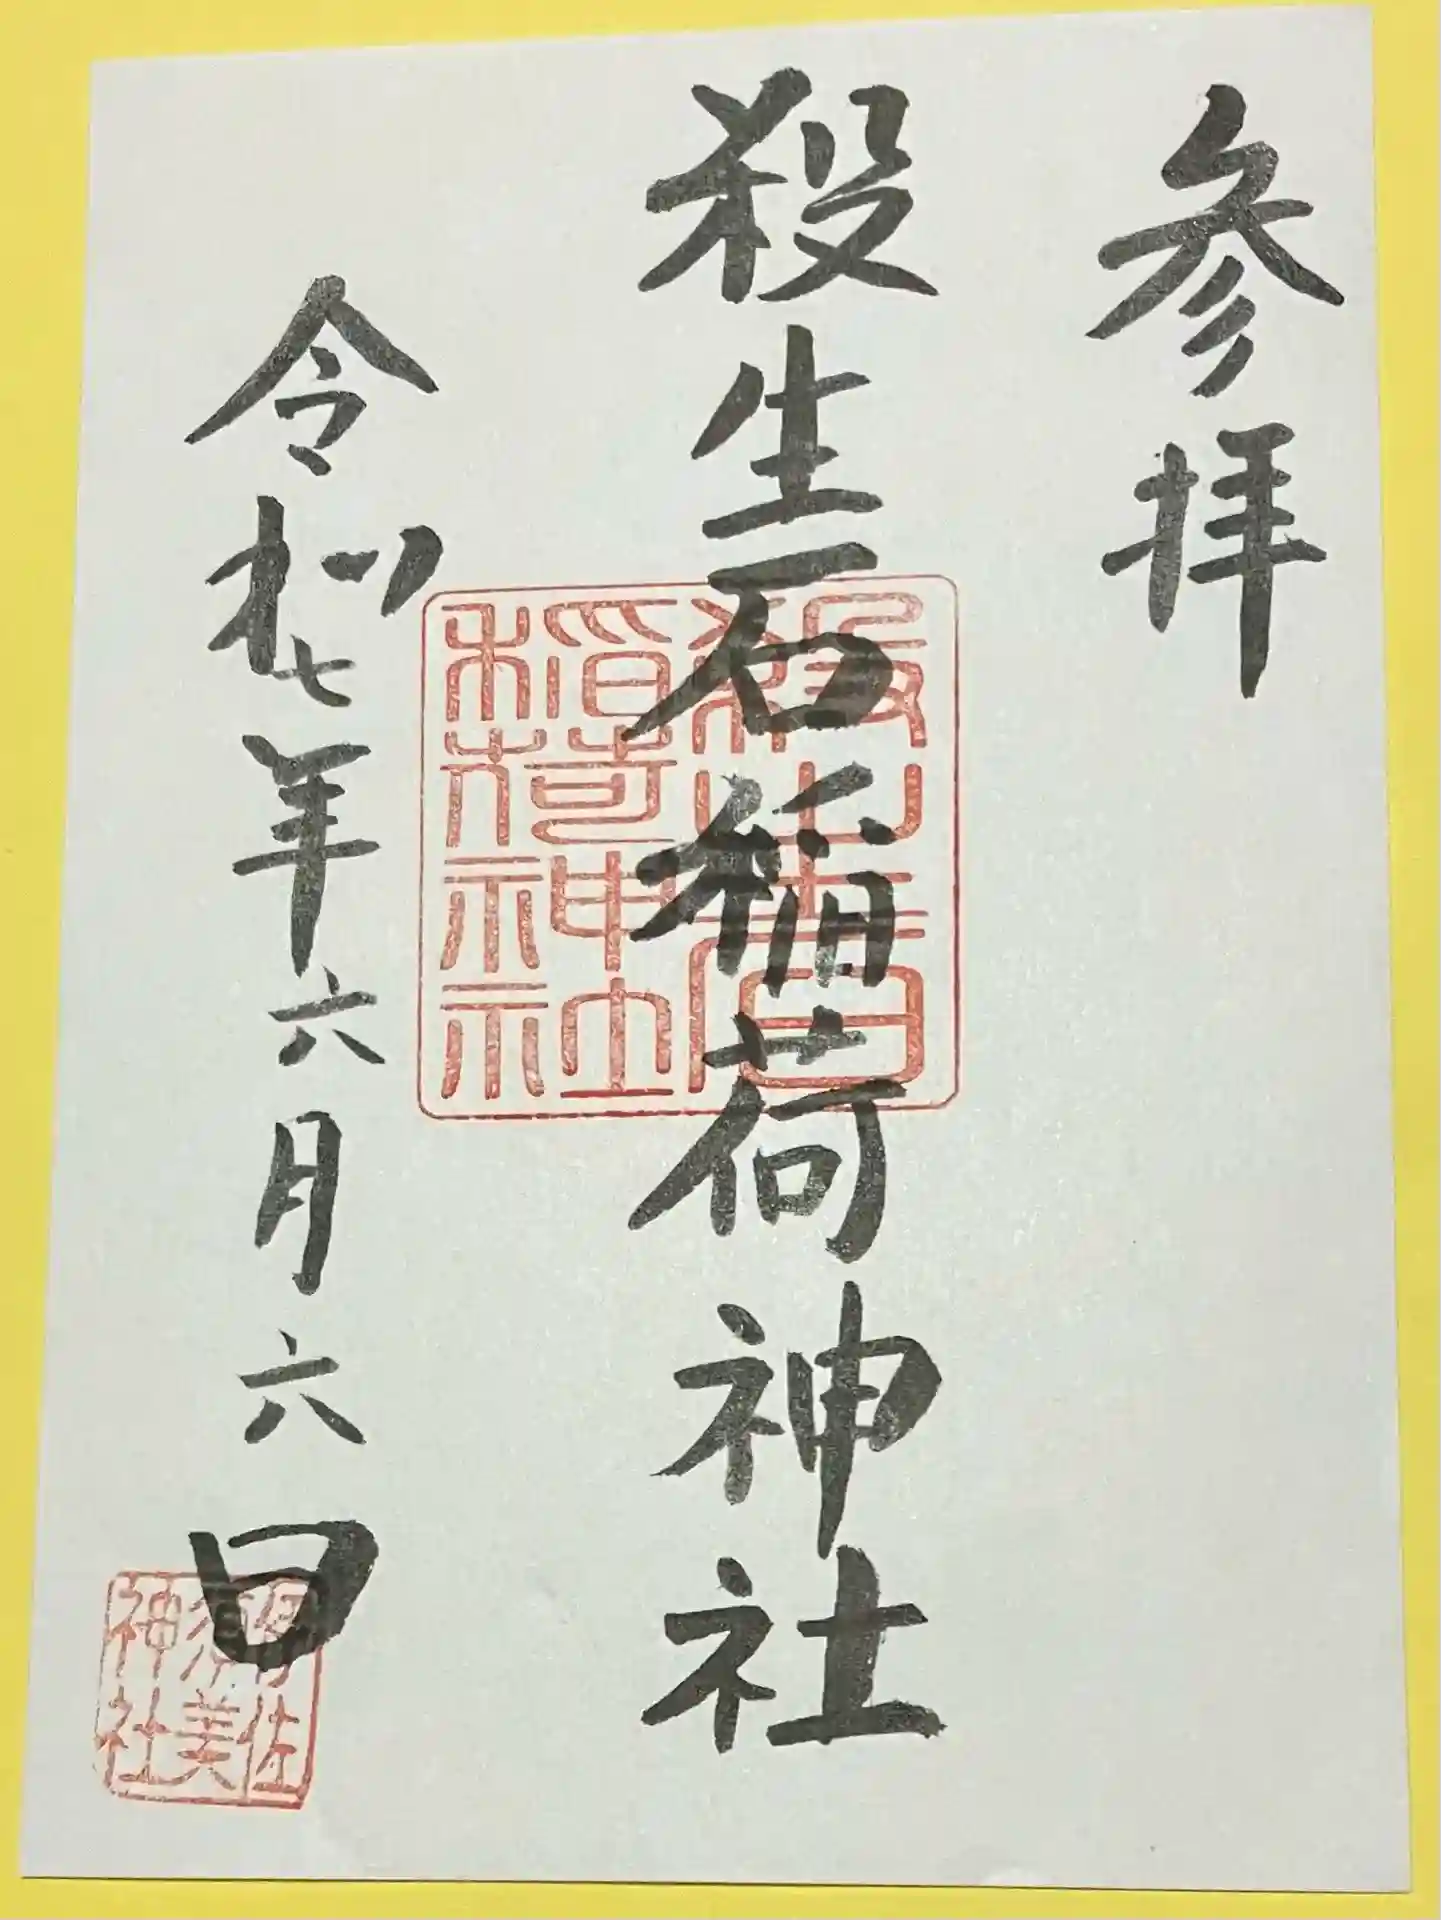 参拝
殺生石稲荷神社
殺生石
稲荷神社
令和七年六月六日
神社